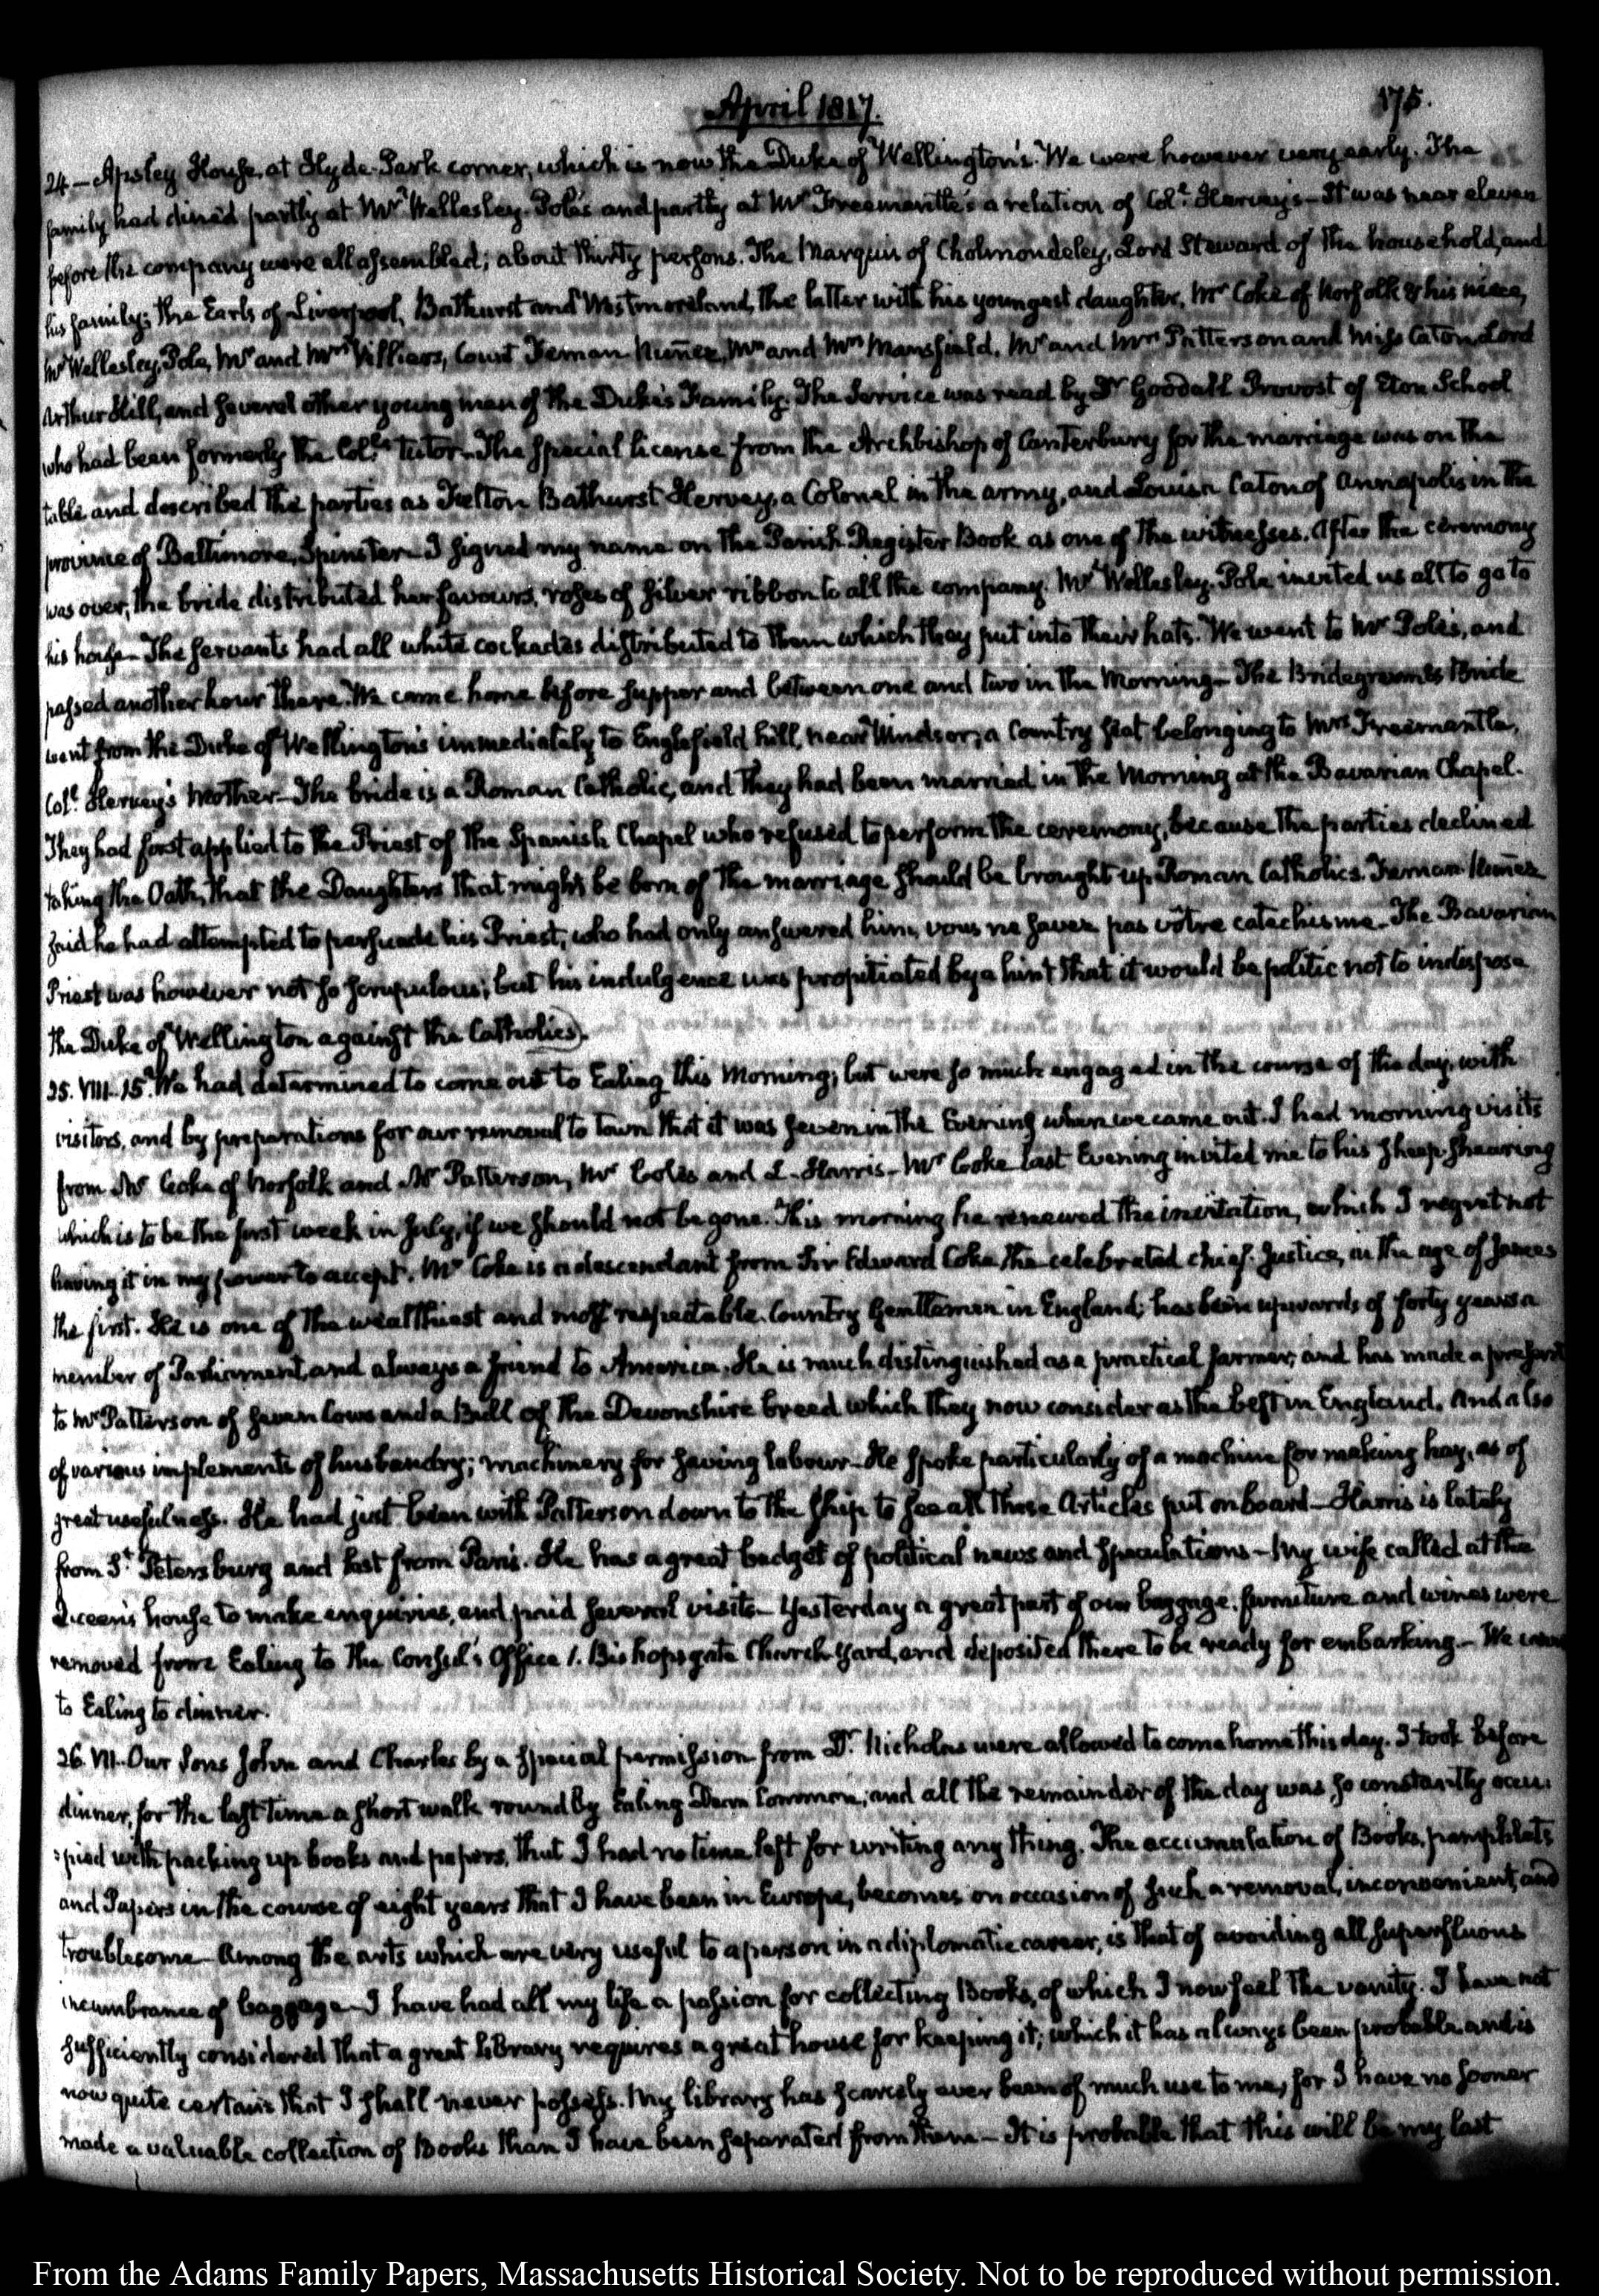 April 1817.
175.
24 — Apsley House, at Hyde-Park corner, which is now the Duke of Wellington's. We were however very early. The
family had dined partly at Mr Wellesley-Pole's and partly at Mr Freemantle's a relation of Coll. Hervey's — It was near eleven
before the company were all assembled; about thirty persons. The Marquis of Cholmondeley, Lord Steward of the household, and
his family; the Earls of Liverpool, Bathurst and Westmoreland, the latter with his youngest daughter, Mr Coke of Norfolk & his niece,
Mr Wellesley-Pole, Mr and Mrs Villiers, Count Fernan Nuñez, Mr and Mrs Mansfield, Mr and Mrs Patterson and Miss Caton Lord
Arthur Hill, and several other young men of the Duke's Family. The Service was read by Dr Goodall Provost of Eton School
who had been formerly the Coll's tutor — The special license from the Archbishop of Canterbury for the marriage was on the
table and described the parties as Felton Bathurst Hervey, a Colonel in the army, and Louisa Caton of Annapolis in the
province of Baltimore, Spinster — I signed my name on the Parish Register Book as one of the witnesses. After the ceremony
was over, the bride distributed her favours, roses of silver ribbon to all the company. Mr Wellesley-Pole invited us all to go to
his house — The servants had all white cockades distributed to them which they put into their hats. We went to Mr Pole's, and
passed another hour there. We came home before supper and between one and two in the Morning — The Bridegroom & Bride
went from the Duke of Wellington's immediately to Englefield hill, near Windsor; a Country seat belonging to Mrs Freemantle,
Coll. Hervey's Mother — The bride is a Roman Catholic, and they had been married in the Morning at the Bavarian Chapel.
They had first applied to the Priest of the Spanish Chapel who refused to perform the ceremony, because the parties declined
taking the Oath, that the Daughters that might be born of the marriage should be brought up Roman Catholics. Fernan-Nuñez
said he had attempted to persuade his Priest, who had only answered him, vous ne savez pas vôtre catechisme — The Bavarian
Priest was however not so scrupulous; but his indulgence was propitiated by a hint that it would be politic not to indispose
the Duke of Wellington against the Catholics).
25. VIII. 15. We had determined to come out to Ealing this Morning; but were so much engaged in the course of the day, with
visitors, and by preparations for our removal to town that it was seven in the Evening when we came out. I had morning visits
from Mr Coke of Norfolk and Mr Patterson, Mr Coles and L. Harris — Mr Coke last Evening invited me to his sheep-shearing
which is to be the first week in July, if we should not be gone. This morning he renewed the invitation, which I regret not
having it in my power to accept. Mr Coke is a descendant from Sir Edward Coke, the celebrated chief-Justice, in the age of James
the first. He is one of the wealthiest and most respectable Country Gentlemen in England; has been upwards of forty years a
member of Parliament, and always a friend to America. He is much distinguished as a practical farmer; and has made a present
to Mr Patterson of seven Cows and a Bull of the Devonshire breed which they now consider as the best in England. And also
of various implements of husbandry; machinery for saving labour — He spoke particularly of a machine for making hay, as of
great usefulness. He had just been with Patterson down to the ship to see all these Articles put on board — Harris is lately
from St Petersburg and last from Paris. He has a great budget of political news and speculations — My wife called at the
Queen's house to make enquiries, and paid several visits — Yesterday a great part of our baggage, furniture and wines were
removed from Ealing to the Consul's Office 1. Bishopsgate Church-Yard, and deposited there to be ready for embarking — We came
to Ealing to dinner.
26. VII. Our Sons John and Charles by a special permission from Dr Nicholas were allowed to come home this day. I took before
dinner, for the last time a short walk round by Ealing Dean Common; and all the remainder of the day was so constantly occu:
:pied with packing up books and papers, that I had no time left for writing any thing. The accumulation of Books, pamphlets
and Papers in the course of eight years that I have been in Europe, becomes on occasion of such a removal, inconvenient, and
troublesome — Among the arts which are very useful to a person in a diplomatic career, is that of avoiding all superfluous
incumbrance of baggage — I have had all my life a passion for collecting Books, of which I now feel the vanity. I have not
sufficiently considered that a great library requires a great house for keeping it; which it has always been probable and is
now quite certain that I shall never possess. My library has scarcely ever been of much use to me, for I have no sooner
made a valuable collection of Books than I have been separated from them — It is probable that this will be my last
From the Adams Family Papers, Massachusetts Historical Society. Not to be reproduced without permission.